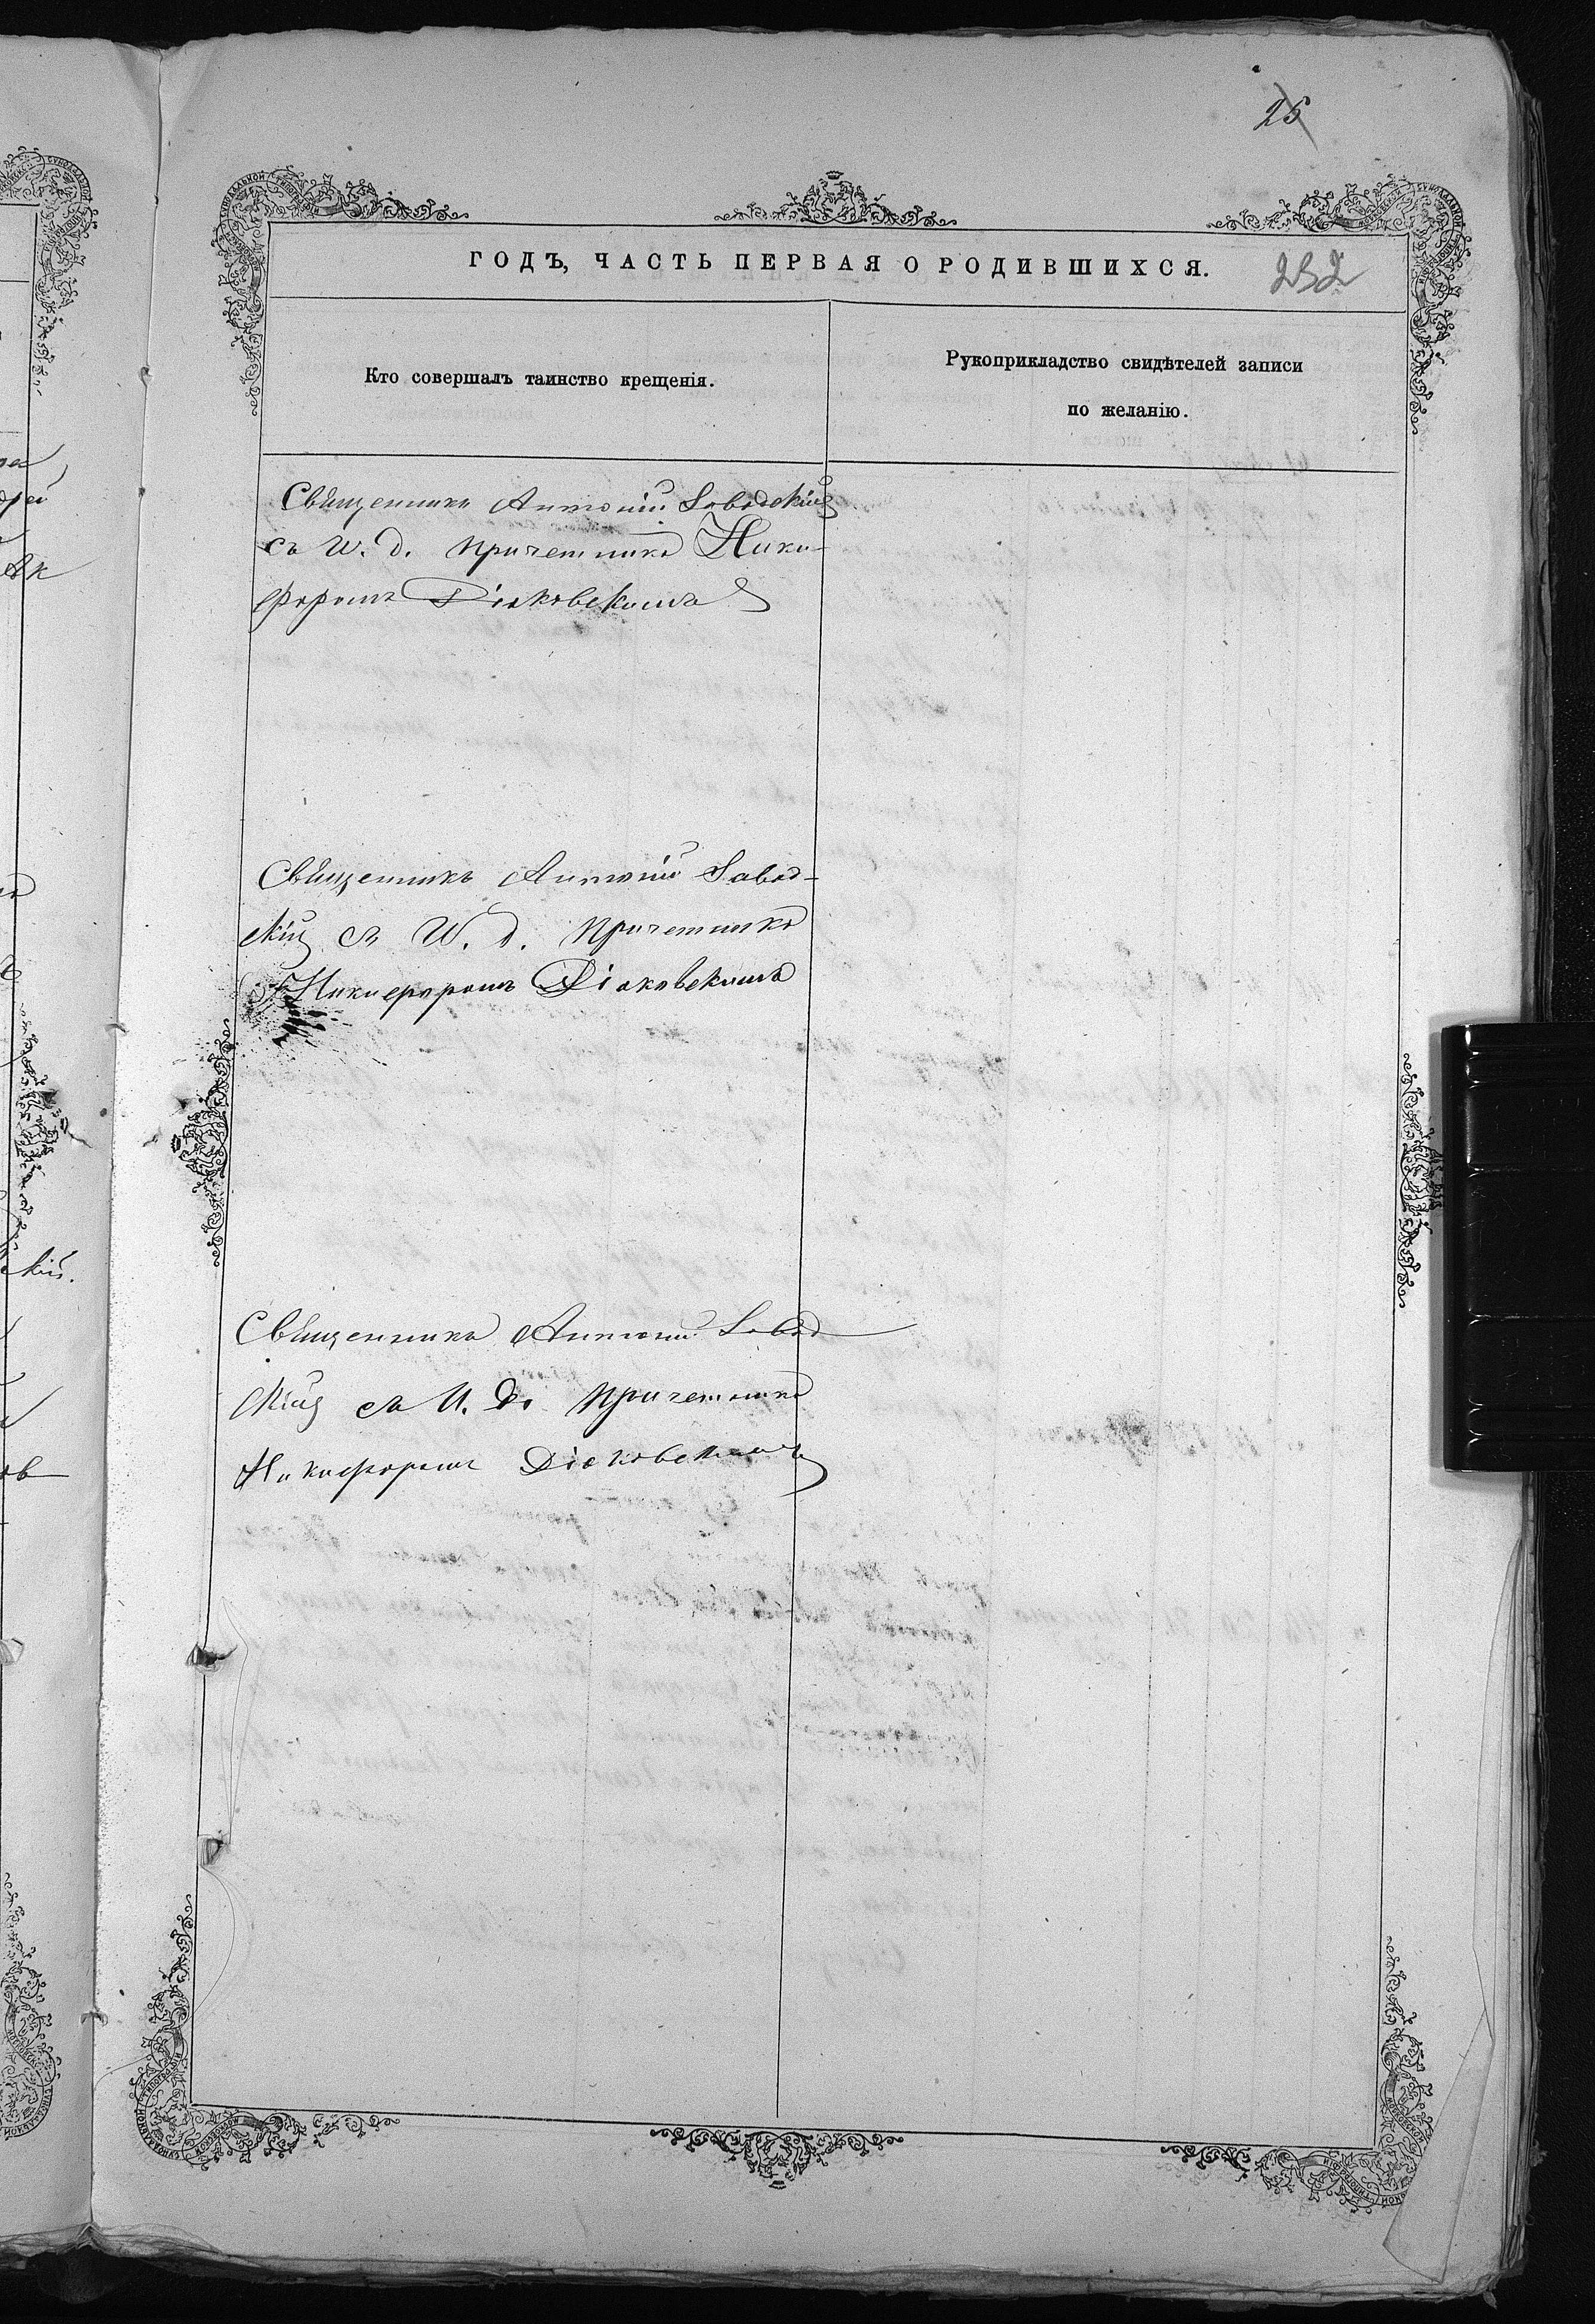 25
ГОДЪ, ЧАСТЬ ПЕРВАЯ О РОДИВШИХСЯ.
232
Кто совершалъ таинство крещенія.
Рукоприкладство свидѣтелей записи
по желанію.
Священникъ Антоній Заводскій
съ И. д. причетника Ники-
форомъ Діаковскимъ
Священникъ Антоній Завод-
скій съ И. д. причетника
Никифоромъ Діаковскимъ
Священникъ Антоній Завод
скій съ И. д. причетника
Никифоромъ Діаковскимъ